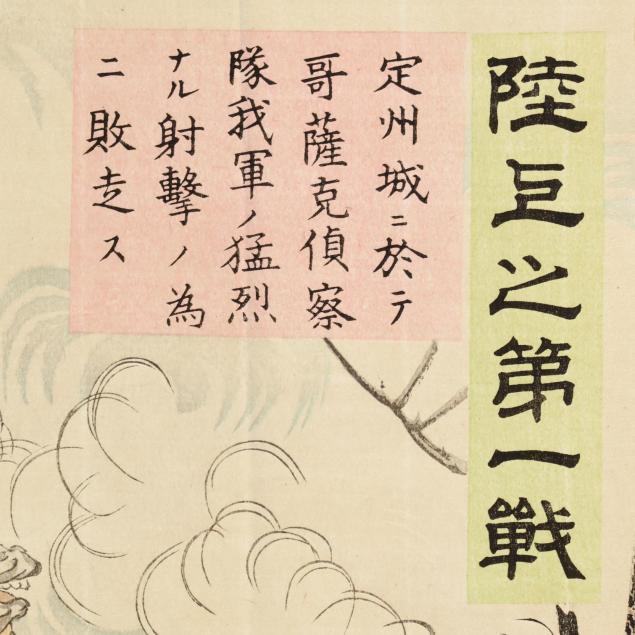 陸上之第一戰
定州城ニ於ニテ
哥薩克偵察
隊我軍ノ猛烈
ナル射擊ノ為
ニ敗走ス